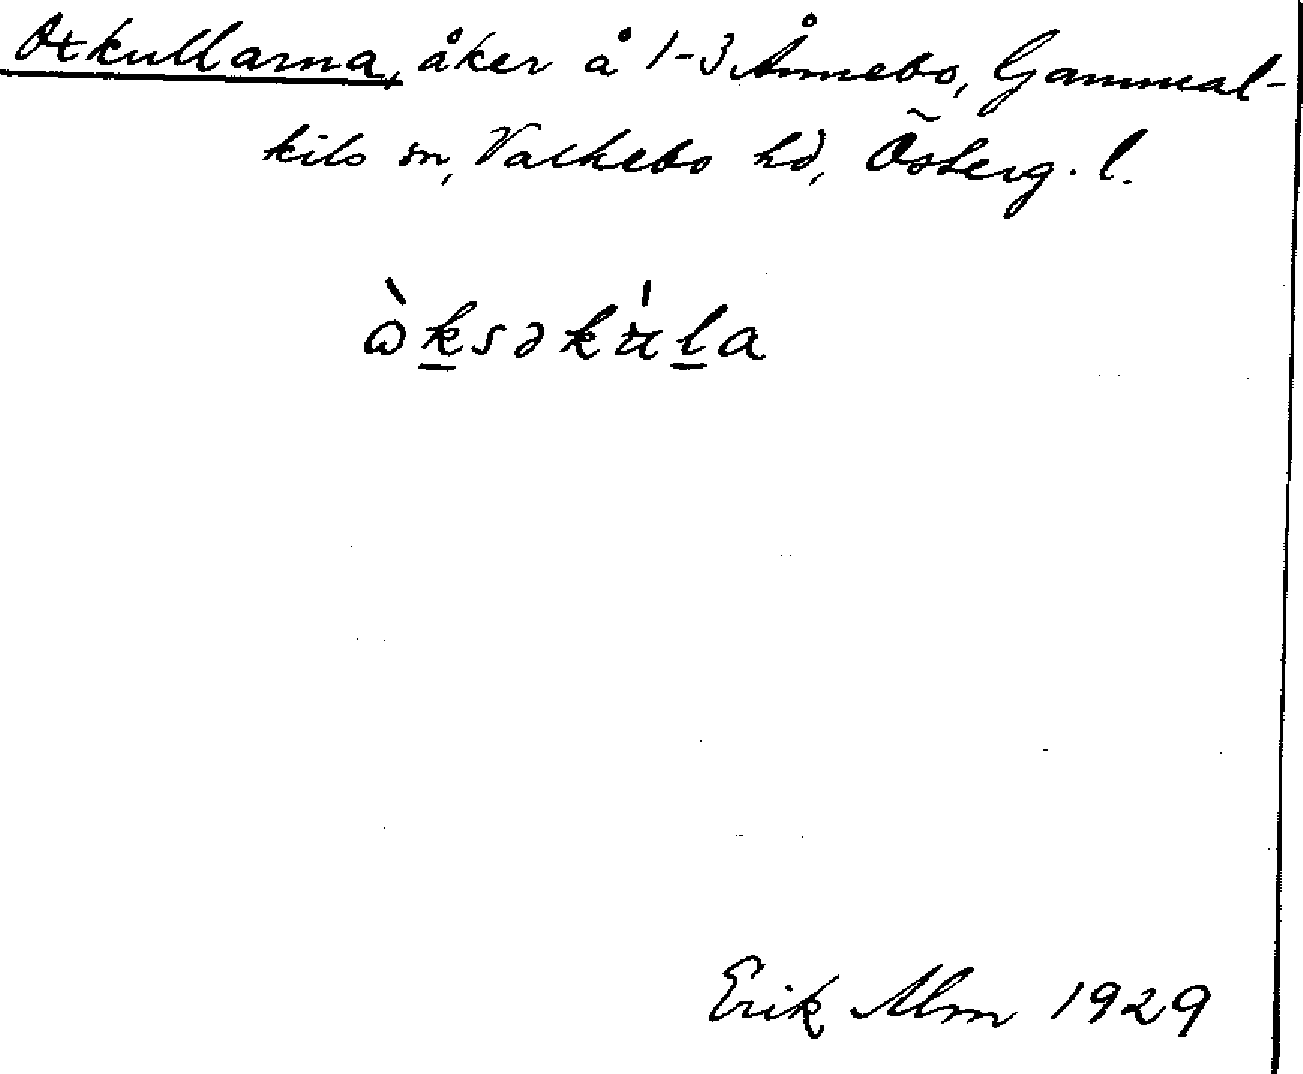 Oxkullarna, åker å 1-3 Ånnebo, Gammal-
kils sn, Valkebo hd, Österg. l.
ὼk̲səkɯ́l̲a
Erik Alm 1929